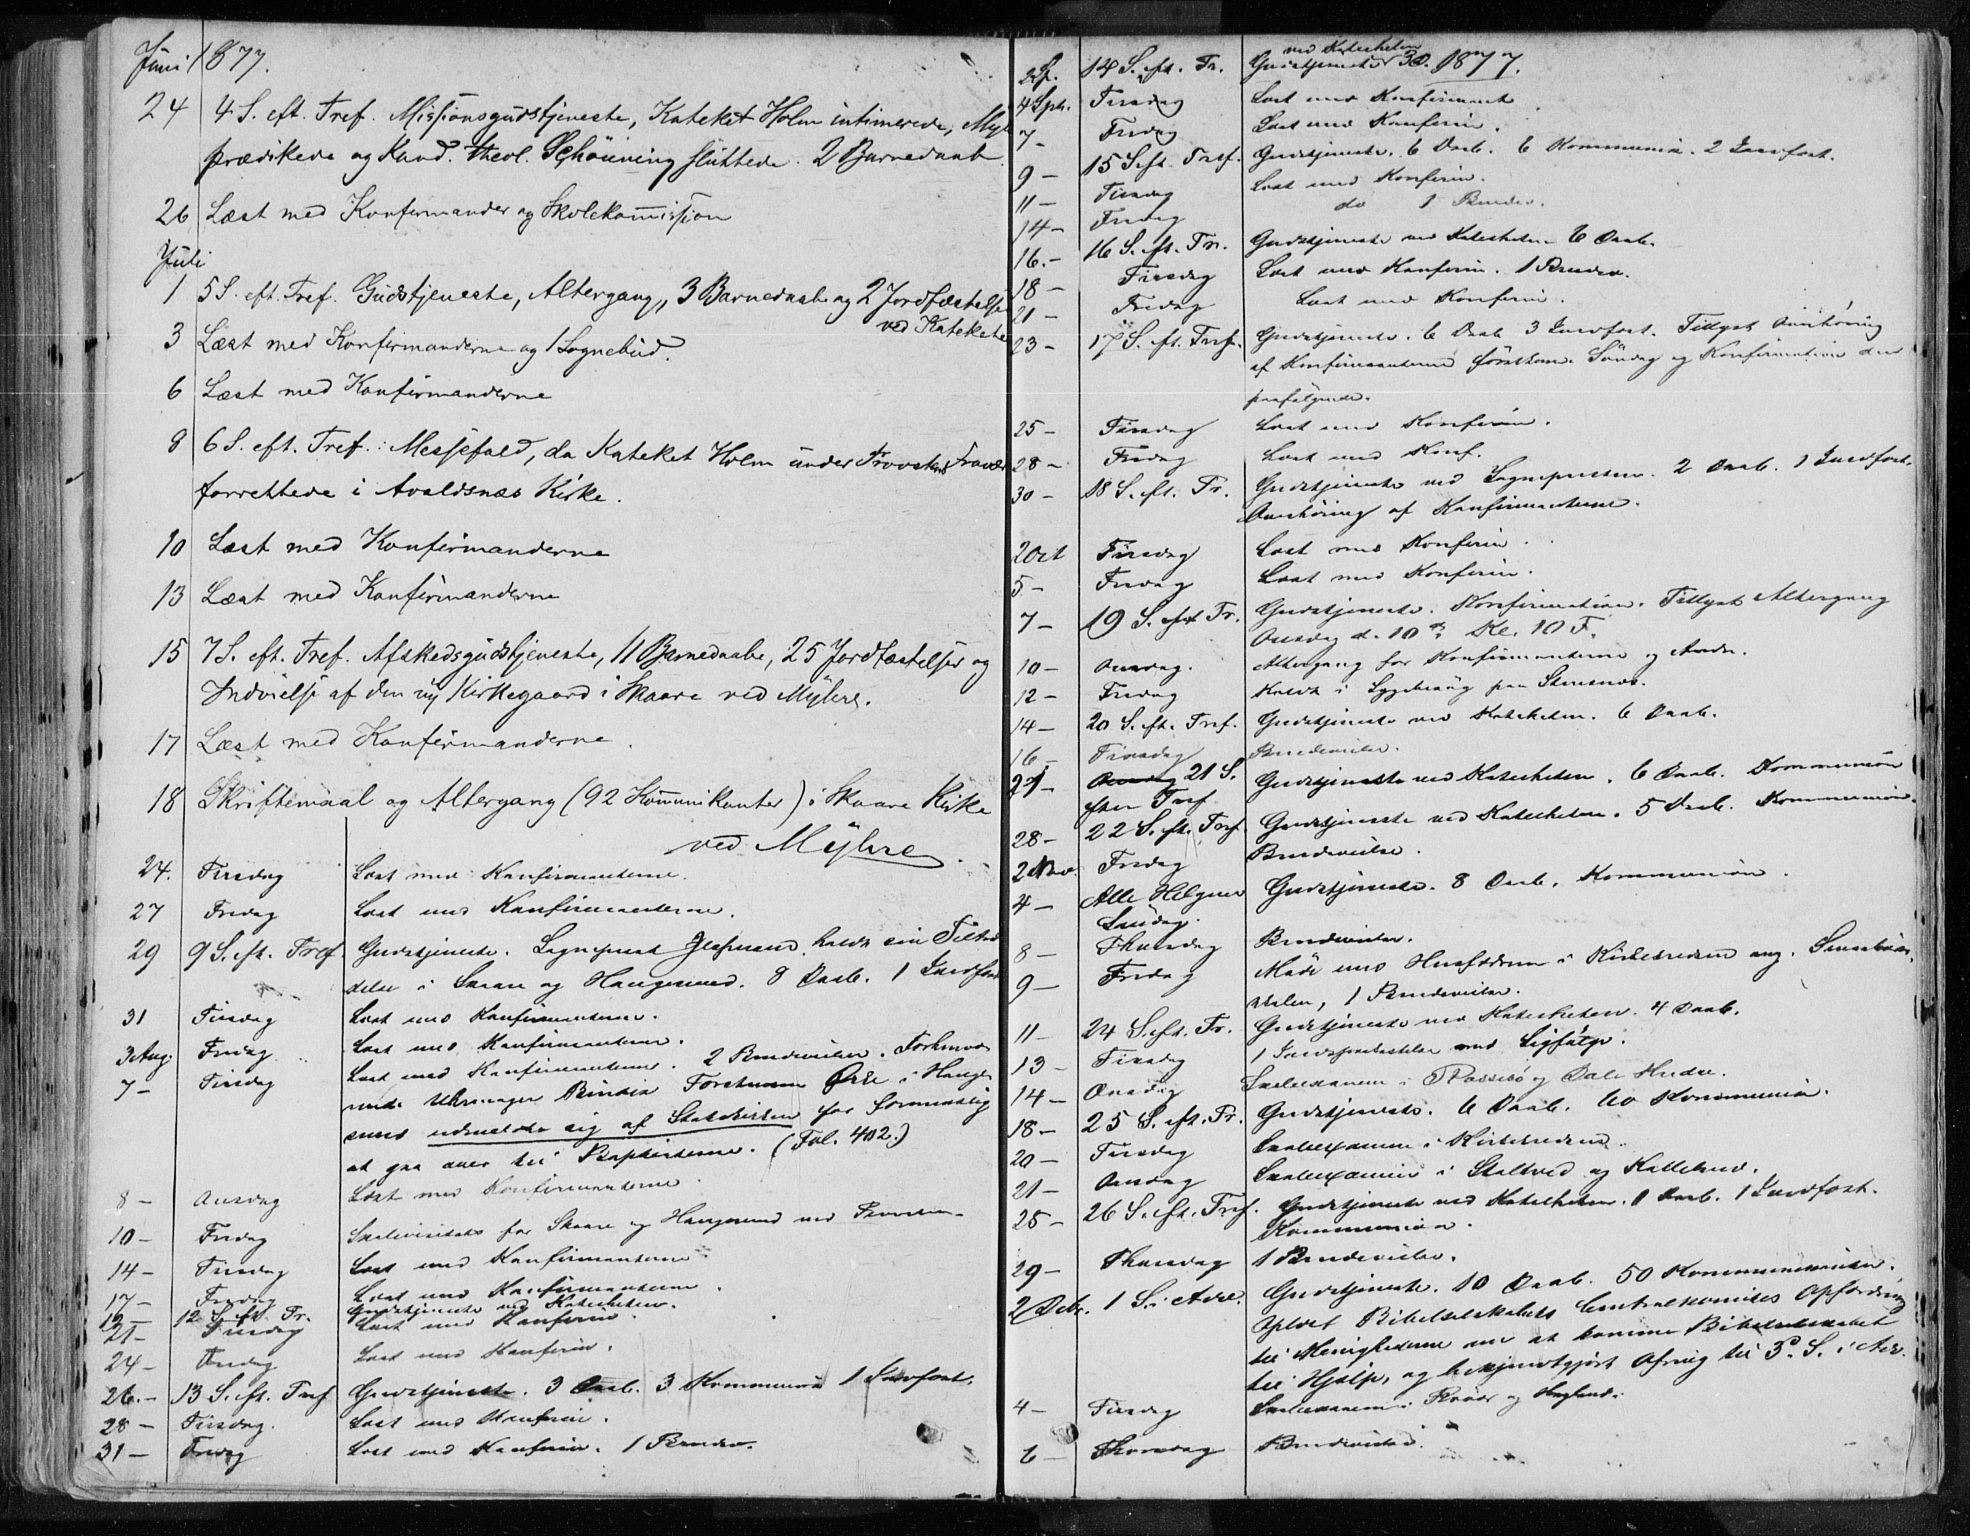 Juni 1877.
24 4 S. eft. Tref. Missionsgudstjeneste, Kateket Holm intimerede, Myl
prædikede og Kand. theol. Schönning sluttede. 2 Barnedaab
26 Læst med Konfirmander og Skolekommission
Juli
1 5 S. eft. Tref. Gudstjeneste, Altergang, 3 Barnedaab og 2 Jordfæstelser
ved Kateketen
3 Læst med Konfirmanderne og 1 Sognebud.
6 Læst med Konfirmanderne
8 6 S. eft. Tref.: Messefald, da Kateket Holm under Provstens Fravær
forrettede i Avaldsnæs Kirke.
10 Læst med Konfirmanderne
13 Læst med Konfirmanderne
15 7 S. eft. Tref. Afskedsgudstjeneste, 11 Barnedaab, 25 Jordfæstelser og
Indvielse af den ny Kirkegaard i Skaare ved Mÿhre.
17 Læst med Konfirmanderne.
18 Skriftemaal og Altergang (92 Kommunikanter) i Skaare Kirke
ved Mÿhre.
24. Tirsdag Læst med Konfirmanterne.
27 Fredag Læst med Konfirmanterne.
29 9 S. eft. Tref Gudstjeneste. Sognepræst holdt sin Tiltræ
delse i Skaare og Haugesund. 8 Daab. 1 Jordfæst
31 Tirsdag Læst med Konfirmanterne.
3 Aug. Fredag Læst med Konfirmanterne.
7 - Tirsdag Læst med Konfirmanterne. 2 Brudevielser.
i Hauge
sund udmeldte sig af Statskirken for formentlig
at gaa over til Baptisterne. (Fol. 402.)
8 - Onsdag Læst med Konfirmanterne.
10 - Fredag Skolevisitats for Skaare og Haugesund ved Provsten.
14 - Tirsdag Læst med Konfirmanterne.
17 - Fredag Læst med Konfirmanterne.
19 - 12 S. eft. Tr. Gudstjeneste ved Katecheten.
21 - Tirsdag Læst med Konfirm.
24 - Fredag Læst med Konfirm.
26. - 13 S. eft. Tref Gudstjeneste. 3 Daab. 3 Kommunion 1 Jordfæst.
28 - Tirsdag. Læst med Konfirm.
31 - Fredag Læst med Konfirm. 1 Brudev.
2 Sp. 14 S. eft. Tr. Gudstjeneste ved Katecheten 3 D. 1877.
4 Sptr. Tirsdag Læst med Konfirmant
7 - Fredag Læst med Konfirm.
9 - 15 S. eft. Tref. Gudstjeneste. 6 Daab. 6 Kommunion. 2 Jordfæst.
11 - Tirsdag Læst med Konfirm.
14 - Fredag do 1 Brudev.
16. - 16 S. eft. Tr. Gudstjeneste ved Katecheten 6 Daab.
18 - Tirsdag Læst med Konfirm. 1 Brudev.
21 - Fredag Læst med Konfirm.
23 - 17 S. eft. Tref. Gudstjeneste. 6 Daab 3 Jordfæst. Tillyst Overhøring
af Konfirmanterne førstkom. Søndag og Konfirmation den
paafølgende.
25 - Tirsdag Læst med Konfirm.
28 - Fredag Læst med Konf.
30 - 18 S. eft. Tr. Gudstjeneste ved Sognepresten. 2 Daab. 1 Jordfæst.
Overhøring af Konfirmanterne.
2 Oct Tirsdag Læst med Konfirm.
5 - Fredag Læst med Konfirm.
7 - 19 S. eft Tr. Gudstjeneste. Konfirmation. Tillyst Altergang
Onsdag d. 10de Kl. 10 F.
10 - Onsdag. Altergang for Konfirmanterne og Andre.
12 - Fredag Kaldt i Sygebesøg paa
14 - 20 S. eft. Tref. Gudstjeneste ved Katecheten. 6 Daab.
16 - Tirsdag Brudevielse.
21 - 21 S. efter Tref Gudstjeneste ved Katecheten. 6 Daab. Kommunion
28 - 22 S. eft. Tref Gudstjeneste ved Katecheten. 5 Daab. Kommunion.
2 Nov Fredag Brudevielse.
4 - Alle Helgens Søndag. Gudstjeneste. 8 Daab. Kommunion.
8 - Thorsdag Brudevielse.
9 - Fredag Møde med Husfædrene i Kirkekredsen ang.
skolen, 1 Brudevielse.
11 - 24 S. eft. Tr. Gudstjeneste ved Katecheten. 4 Daab.
13 - Tirsdag 1 Jordfæstelse med Ligfølge.
14 - Onsdag Skoleexamen i og Dale Kredse.
18 - 25 S. eft. Tr. Gudstjeneste. 6 Daab. 60 Kommunion.
20 - Tirsdag Skoleexamen i Kirkekredsen.
21 - Onsdag Skoleexamen i og
25 - 26 S. eft. Tref. Gudstjeneste ved Katecheten. 1 Daab. 1 Jordfæst.
Kommunion.
29 - Thorsdag 1 Brudevielse.
2 Decbr. 1 S. i Adv. Gudstjeneste. 10 Daab. 50 Kommunikanter.
Oplæst Bibelselskabets Centralkomites Opfordring
til Menighederne om at komme Bibelselskabet
til Hjælp, og bekjendtgjort Ofring til 3. S. i Adv.
4 - Tirsdag Skoleexamen i og
6 - Thorsdag Brudevielse.